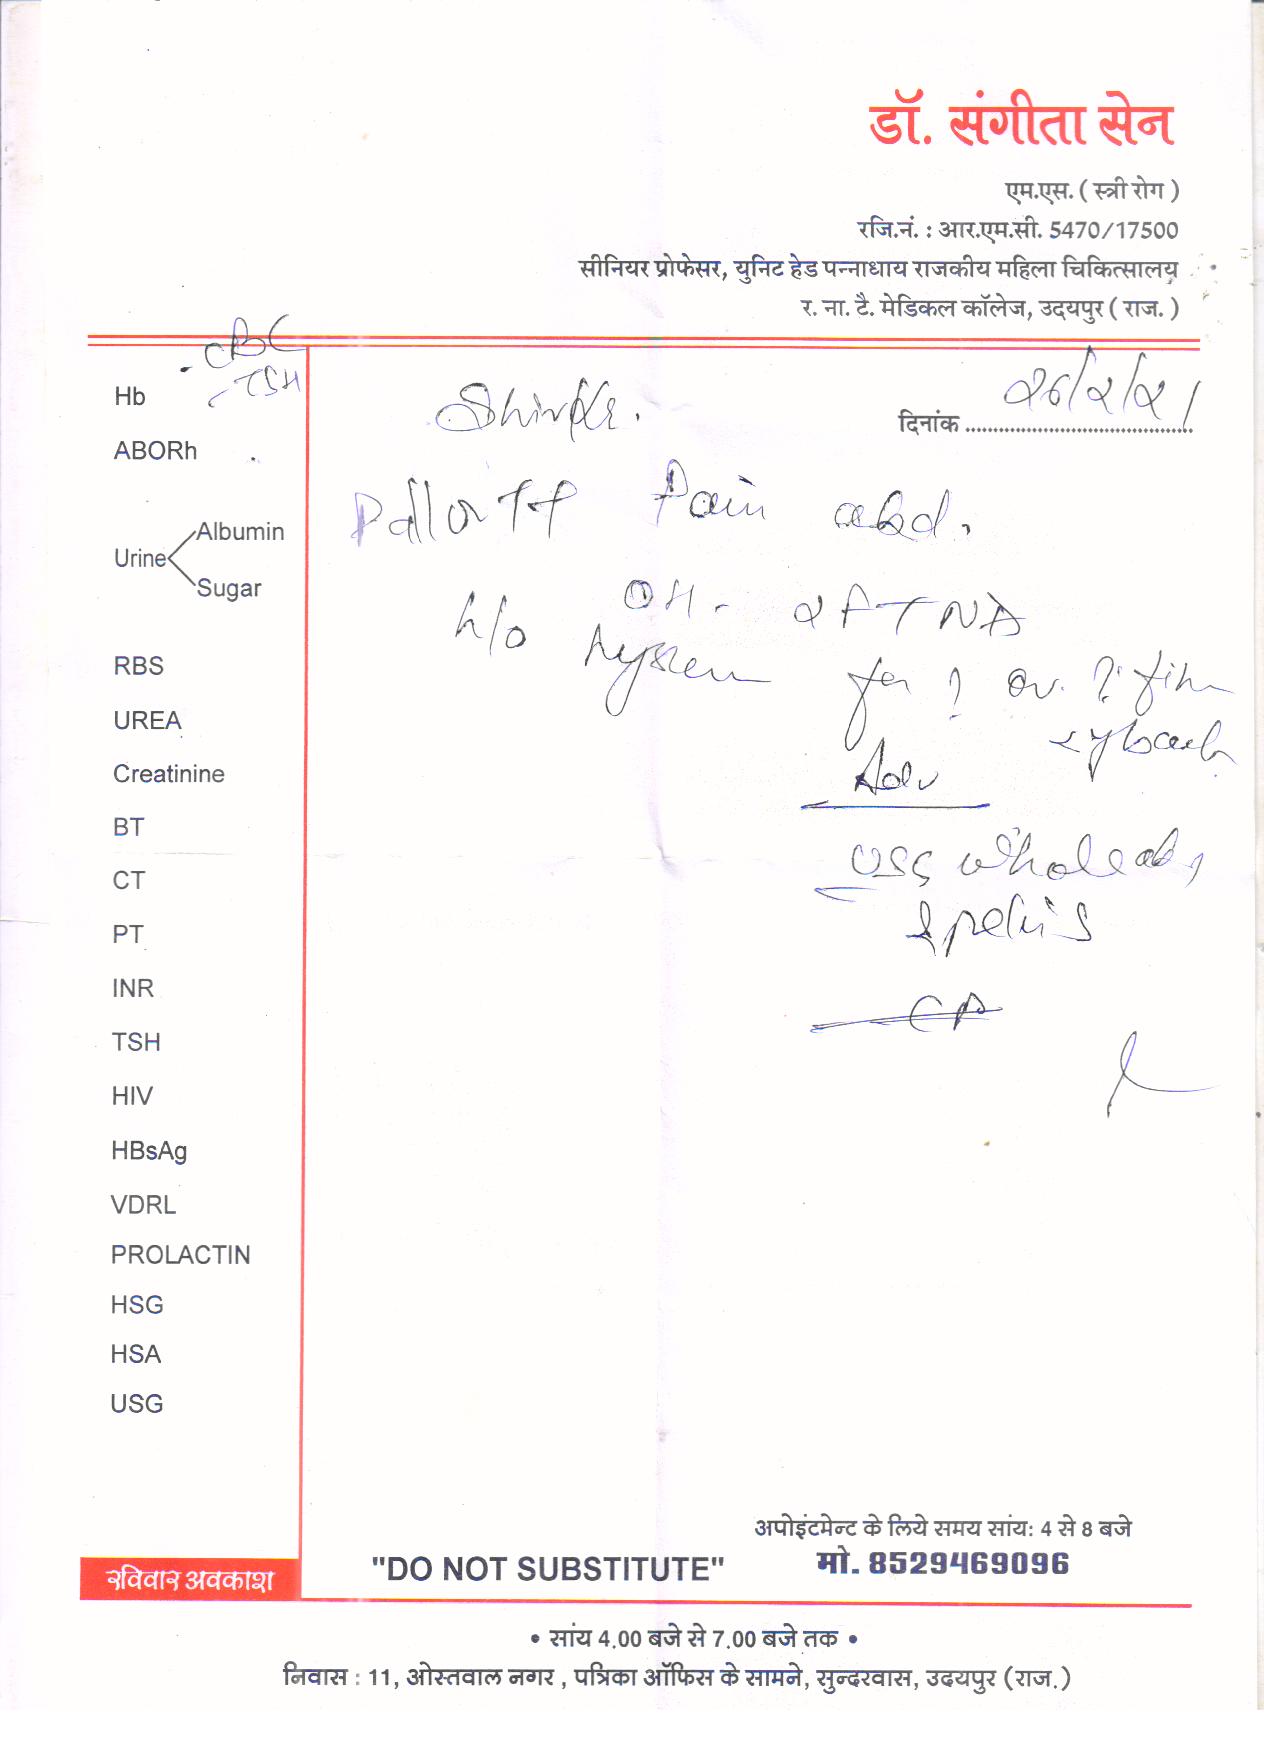 डॉ. संगीता सेन
एम.एस. ( स्त्री रोग )
रजि.नं. : आर.एम.सी. 5470/17500
सीनियर प्रोफेसर, युनिट हेड पन्नाधाय राजकीय महिला चिकित्सालय
र. ना. टै. मेडिकल कॉलेज, उदयपुर ( राज. )
CBC
TSH
दिनांक २६/२/२१
Pallor ++ Pain abd.
OH - 2FTND
h/o
Adv
USG whole abd
pelvis
Hb
ABORh
Urine
Albumin
Sugar
RBS
UREA
Creatinine
BT
CT
PT
INR
TSH
HIV
HBsAg
VDRL
PROLACTIN
HSG
HSA
USG
अपोइंटमेन्ट के लिये समय सांय: 4 से 8 बजे
मो. 8529469096
"DO NOT SUBSTITUTE"
रविवार अवकाश
• सांय 4.00 बजे से 7.00 बजे तक •
निवास : 11, ओस्तवाल नगर , पत्रिका ऑफिस के सामने, सुन्दरवास, उदयपुर (राज.)